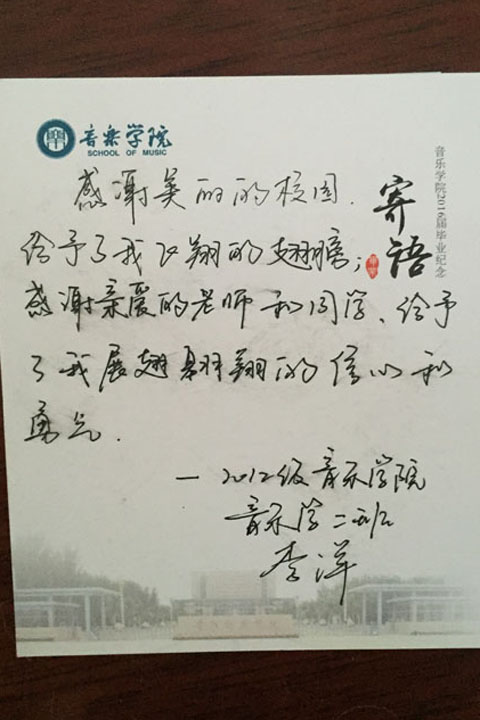 音乐学院
SCHOOL OF MUSIC
寄语
音乐学院2016届毕业纪念
感谢美丽的校园.
给予了我飞翔的翅膀;
感谢亲爱的老师和同学、给予
了我展翅翱翔的信心和
勇气.
— 2012级音乐学院
音乐学二班
李洋